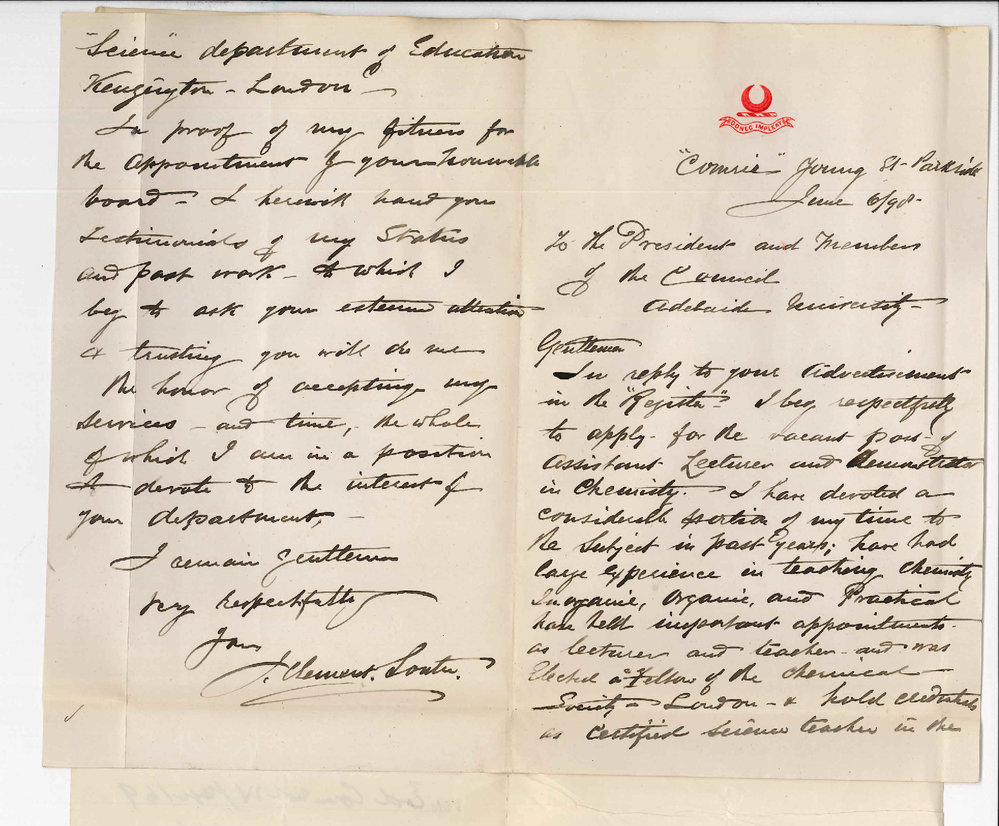 DONEC IMPLEAT
"Comrie" Young St Parkside
June 6/98-
To the President and Members
of the Council
Adelaide University-
Gentlemen
In reply to your Advertisement
in the "Register"- I beg respectfully
to apply- for the vacant post- of
Assistant Lecturer and Demonstrator
in Chemistry. I have devoted a
considerable portion of my time to
the Subject in past years; have had
large experience in teaching chemistry
Inorganic, Organic, and Practical
have held important appointments-
as lecturer and teacher- and was
Elected a Fellow of the Chemical
Society- London- & hold credentials
as certified science teacher in the
"Science" department of Education
Kensington- London-
In proof of my fitness for
the appointment of your honourable
board- I herewith hand you
testimonials of my Status
and past work- to which I
beg to ask your esteemed attention
& trusting you will do me
the honor of accepting my
services- and time, the whole
of which I am in a position
to devote to the interest of
your department,-
I remain Gentlemen
Very respectfully
Yours
J. Clement. Souter.